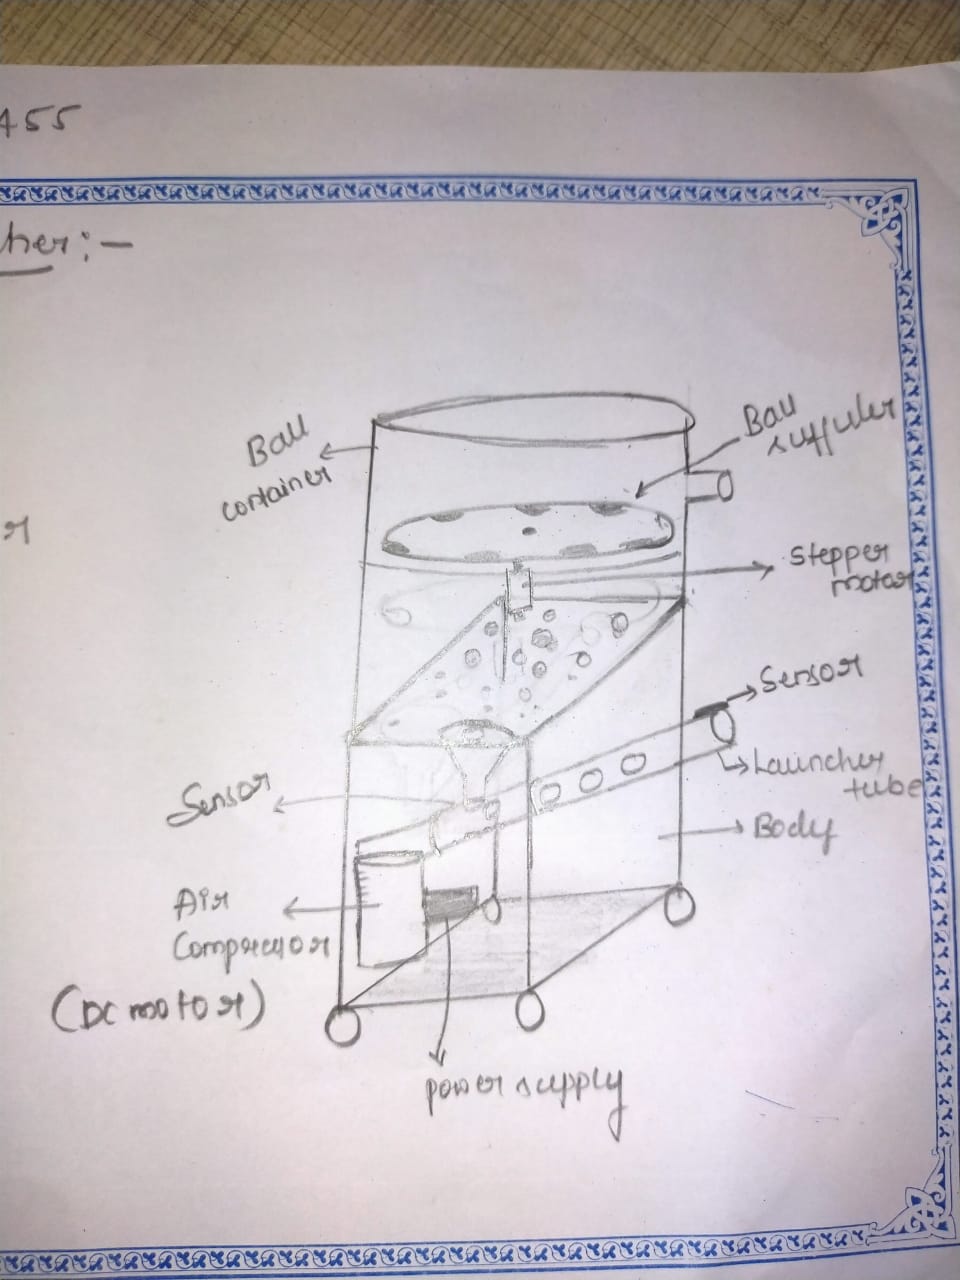 455
her:-
Ball
container
Ball
suffuler
r
stepper
motor
Sensor
Launcher
tube
Sensor
Body
Air
Compressor
(DC motor)
power supply